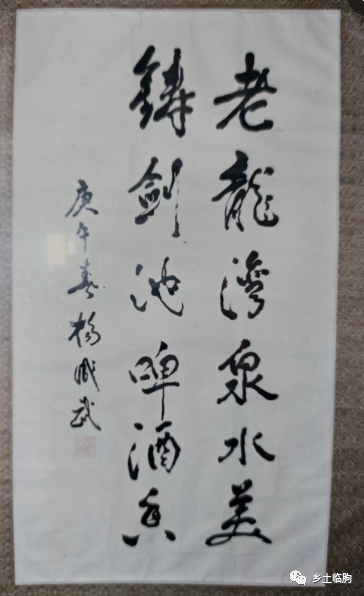 老龍灣泉水美
鑄劍池啤酒香
庚午春楊成武
乡土临朐